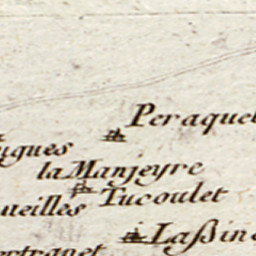 Peraquel
ugues
la Manjeyre
Tucoulet
ueilles
Laßin
ertranet